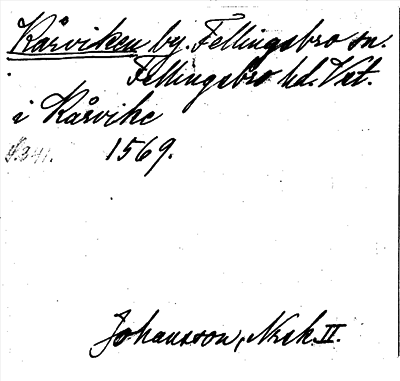 Kårviken by. Fellingsbro sn.
Fellingsbro hd. Vst.
i Kårvike
S. 341. 1569.
Johansson, Nksk. II.